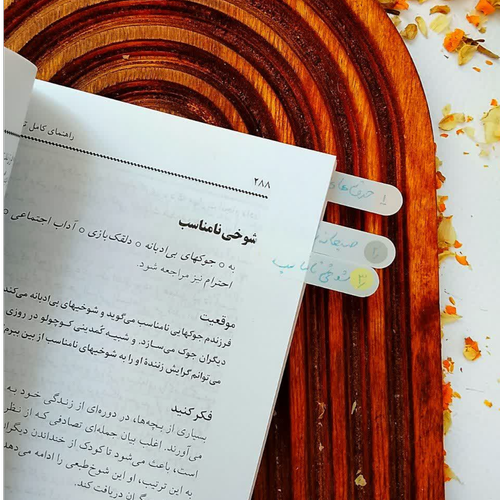 راهنمای کامل
۲۸۸
شوخی نامناسب
به ○ جوکهای بی‌ادبانه ○ دلقک‌بازی ○ آداب اجتماعی ○
احترام نیز مراجعه شود.
موقعیت
فرزندم جوکهایی نامناسب می‌گوید و شوخیهای بی‌ادبانه می‌کند
دیگران جوک می‌سازد. و شبیه کُمدینی کوچولو در روزی
می‌توانم گرایش زنندهٔ او را به شوخیهای نامناسب از بین ببرم
فکر کنید
بسیاری از بچه‌ها، در دوره‌ای از زندگی خود به
می‌آورند. اغلب بیان جمله‌ای تصادفی که از نظر
است، باعث می‌شود تا کودک از خنداندن دیگران
به این ترتیب، او این شوخ‌طبعی را ادامه می‌دهد
دریافت کند.
۱
۲
۳ شوخی نامناسب